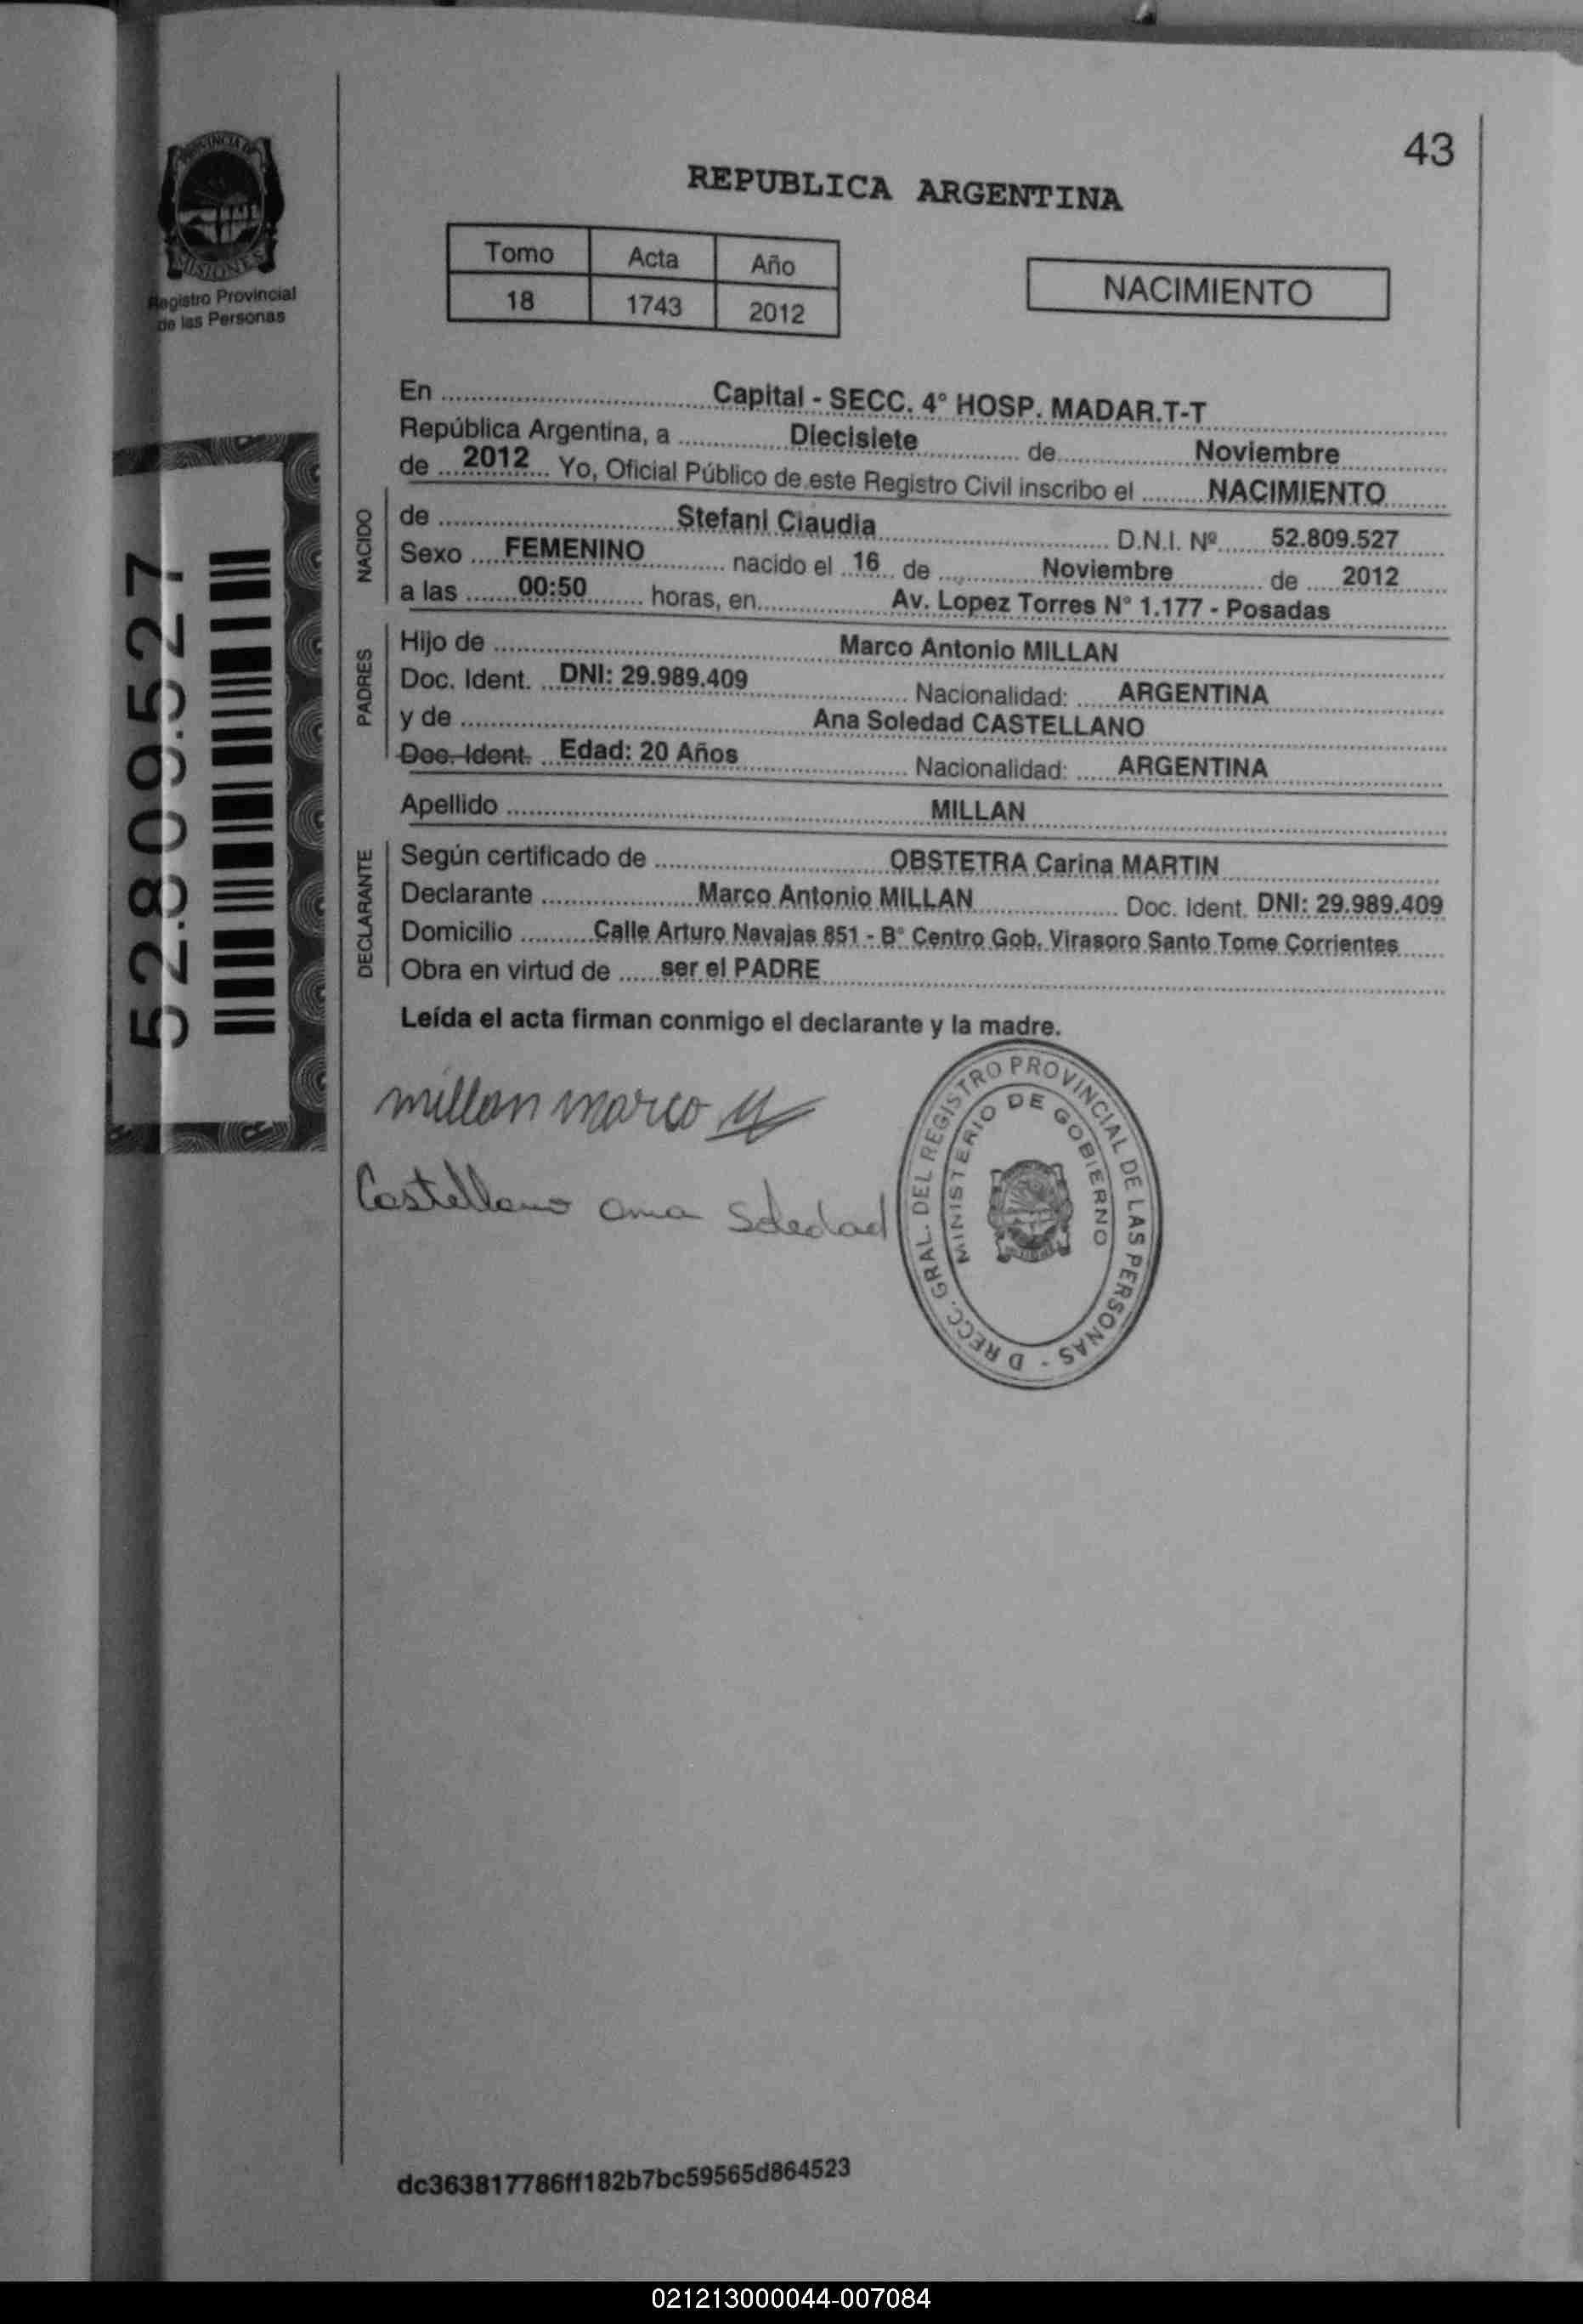 43
REPUBLICA ARGENTINA
PROVINCIA DE
MISIONES
Registro Provincial
de las Personas
Tomo Acta Año
18 1743 2012
NACIMIENTO
En Capital - SECC. 4° HOSP. MADAR.T-T
República Argentina, a Diecisiete de Noviembre
de 2012 Yo, Oficial Público de este Registro Civil inscribo el NACIMIENTO
NACIDO
de Stefani Claudia D.N.I. Nº 52.809.527
Sexo FEMENINO nacido el 16 de Noviembre de 2012
a las 00:50 horas, en Av. Lopez Torres N° 1.177 - Posadas
PADRES
Hijo de Marco Antonio MILLAN
Doc. Ident. DNI: 29.989.409 Nacionalidad: ARGENTINA
y de Ana Soledad CASTELLANO
Doc. Ident. Edad: 20 Años Nacionalidad: ARGENTINA
Apellido MILLAN
DECLARANTE
Según certificado de OBSTETRA Carina MARTIN
Declarante Marco Antonio MILLAN Doc. Ident. DNI: 29.989.409
Domicilio Calle Arturo Navajas 851 - B° Centro Gob. Virasoro Santo Tome Corrientes
Obra en virtud de ser el PADRE
Leída el acta firman conmigo el declarante y la madre.
52.809.527
millan marco
Castellano ana Soledad
D RECC. GRAL. DEL REGISTRO PROVINCIAL DE LAS PERSONAS -
MINISTERIO DE GOBIERNO
dc363817786ff182b7bc59565d864523
021213000044-007084